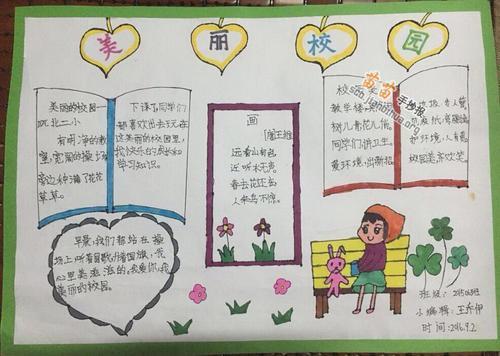 美丽校园
美丽的校园—
玩北二小
有明净的教
室,宽阔的操场
旁边种满了花花
草草。
下课了同学们
都喜欢出去玩在
这美丽的校园里,
找快乐的成长和
学习知识。
画
[唐]王维
远看山有色
近听水无声
春去花还在
人来鸟不惊。
校
教学楼
树儿青花儿俏。
同学们讲卫生。
爱环境,
护环境,人有责
校园美京欢笑
早晨,我们都站在操
场上听着国歌升着国旗,我
心里美滋滋的。我爱你,我
美丽的校园。
苗苗手抄报
班级:
小编辑:王乔伊
时间:2016.9.2